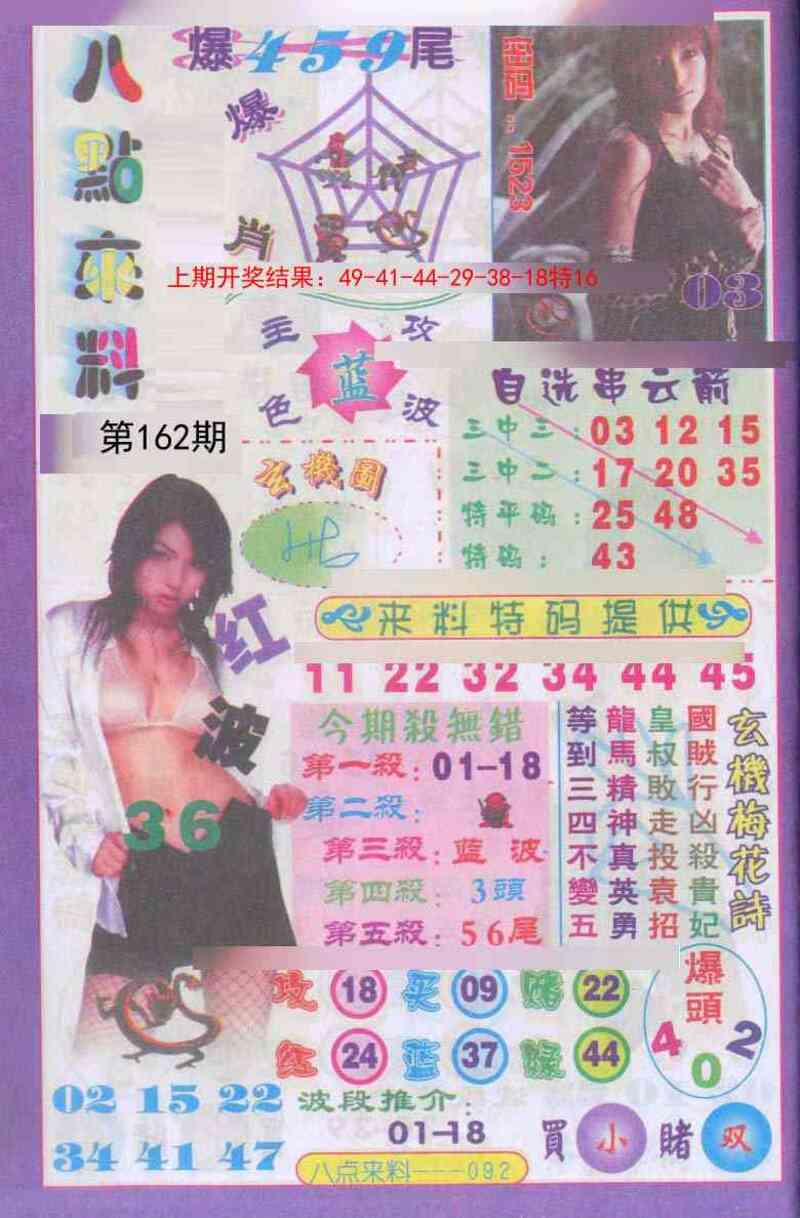 八點來料
爆459尾
爆肖
密码:1523
03
上期开奖结果：49-41-44-29-38-18特16
主攻
蓝
色波
第162期
自选串云箭
三中三:03 12 15
三中二:17 20 35
特平码:25 48
特码:43
玄機圖
红波
36
来料特码提供
11 22 32 34 44 45
今期殺無錯
第一殺:01-18
第二殺:
第三殺:蓝波
第四殺:3頭
第五殺:56尾
玄機梅花詩
國賊行凶殺貴妃
皇叔敗走投袁招
龍馬精神真英勇
等到三四不變五
攻 18 买 09 赌 22
红 24 蓝 37 绿 44
爆頭
4 0 2
02 15 22
34 41 47
波段推介:
01-18
買小賭双
八点来料----092